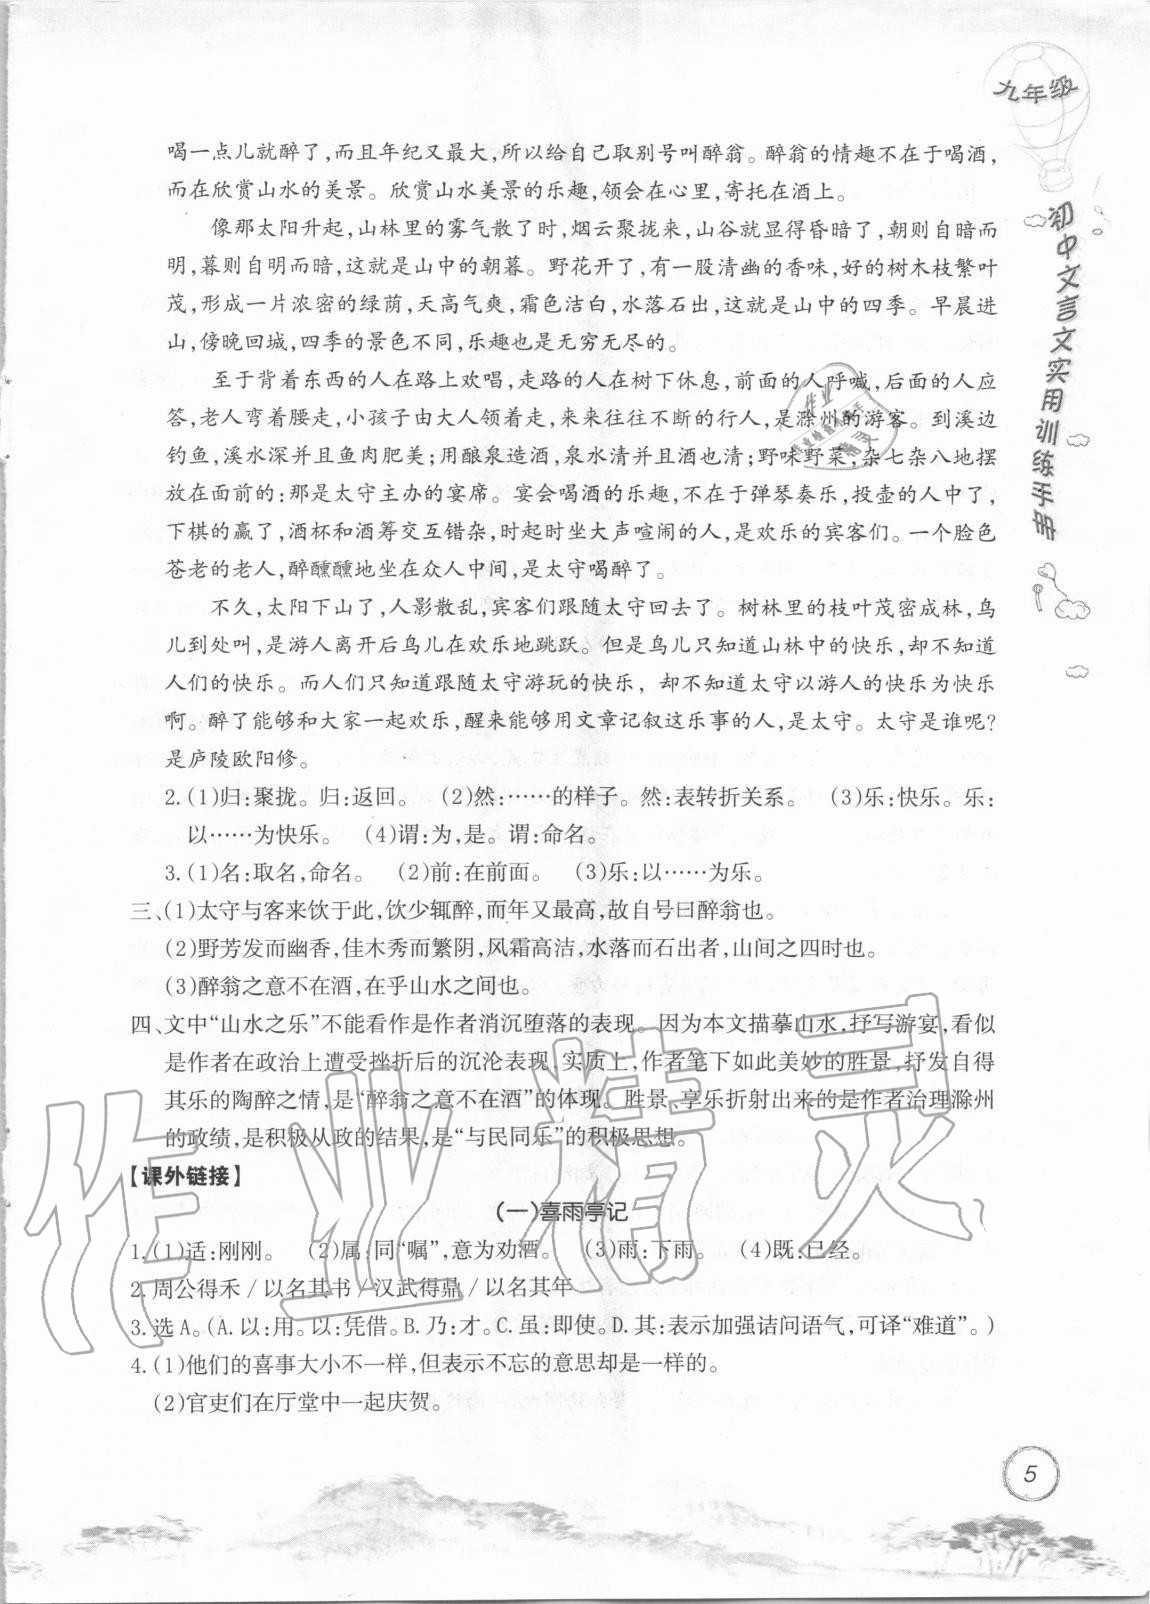 九年级
初中文言文实用训练手册
喝一点儿就醉了,而且年纪又最大,所以给自己取别号叫醉翁。醉翁的情趣不在于喝酒,
而在欣赏山水的美景。欣赏山水美景的乐趣,领会在心里,寄托在酒上。
像那太阳升起,山林里的雾气散了时,烟云聚拢来,山谷就显得昏暗了,朝则自暗而
明,暮则自明而暗,这就是山中的朝暮。野花开了,有一股清幽的香味,好的树木枝繁叶
茂,形成一片浓密的绿荫,天高气爽,霜色洁白,水落石出,这就是山中的四季。早晨进
山,傍晚回城,四季的景色不同,乐趣也是无穷无尽的。
至于背着东西的人在路上欢唱,走路的人在树下休息,前面的人呼喊,后面的人应
答,老人弯着腰走,小孩子由大人领着走,来来往往不断的行人,是滁州的游客。到溪边
钓鱼,溪水深并且鱼肉肥美;用酿泉造酒,泉水清并且酒也清;野味野菜,杂七杂八地摆
放在面前的:那是太守主办的宴席。宴会喝酒的乐趣,不在于弹琴奏乐,投壶的人中了,
下棋的赢了,酒杯和酒筹交互错杂,时起时坐大声喧闹的人,是欢乐的宾客们。一个脸色
苍老的老人,醉醺醺地坐在众人中间,是太守喝醉了。
不久,太阳下山了,人影散乱,宾客们跟随太守回去了。树林里的枝叶茂密成林,鸟
儿到处叫,是游人离开后鸟儿在欢乐地跳跃。但是鸟儿只知道山林中的快乐,却不知道
人们的快乐。而人们只知道跟随太守游玩的快乐,却不知道太守以游人的快乐为快乐
啊。醉了能够和大家一起欢乐,醒来能够用文章记叙这乐事的人,是太守。太守是谁呢?
是庐陵欧阳修。
2.(1)归:聚拢。归:返回。 (2)然:……的样子。然:表转折关系。 (3)乐:快乐。乐:
以……为快乐。 (4)谓:为,是。谓:命名。
3.(1)名:取名,命名。 (2)前:在前面。 (3)乐:以……为乐。
三、(1)太守与客来饮于此,饮少辄醉,而年又最高,故自号曰醉翁也。
(2)野芳发而幽香,佳木秀而繁阴,风霜高洁,水落而石出者,山间之四时也。
(3)醉翁之意不在酒,在乎山水之间也。
四、文中“山水之乐”不能看作是作者消沉堕落的表现。因为本文描摹山水,抒写游宴,看似
是作者在政治上遭受挫折后的沉沦表现,实质上,作者笔下如此美妙的胜景,抒发自得
其乐的陶醉之情,是“醉翁之意不在酒”的体现。胜景、享乐折射出来的是作者治理滁州
的政绩,是积极从政的结果,是“与民同乐”的积极思想。
【课外链接】
(一)喜雨亭记
1.(1)适:刚刚。 (2)属:同“嘱”,意为劝酒。 (3)雨:下雨。 (4)既:已经。
2.周公得禾/以名其书/汉武得鼎/以名其年
3.选A。(A.以:用。以:凭借。B.乃:才。C.虽:即使。D.其:表示加强诘问语气,可译“难道”。)
4.(1)他们的喜事大小不一样,但表示不忘的意思却是一样的。
(2)官吏们在厅堂中一起庆贺。
5
作业精灵